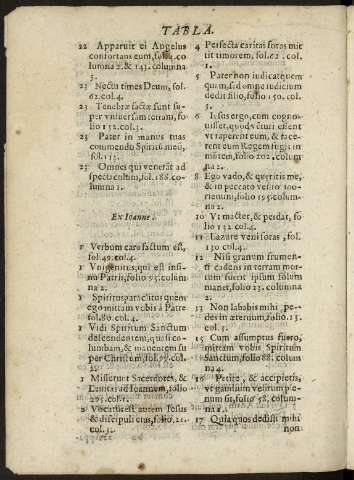 TABLA.
22 Apparuit ei Angelus
confortans eum, fol.
lumna 2. & 143. columna
3.
23 Nec tu times Deum, fol.
62. col. 4.
23 Tenebræ factæ sunt su-
per vniuersam terram, fo
lio 132. col. 3.
23 Pater in manus tuas
commendo Spiritũ meũ,
fol. 113.
23 Omnes qui venerãt ad
spectaculum, fol. 188. co-
lumna 1.
Ex Ioanne.
1 Verbum caro factum est,
fol. 49. col. 4.
1 Vnigenitus, qui est in sinu
Patris, folio 95. colum
na 2.
1 Spiritus paraclitus quem
ego mittam vobis à Patre
fol. 80. col. 4.
1 Vidi Spiritum Sanctum
descendentem, quasi co-
lumbam, & manentem su
per Christum, fol. 97. col.
22.
1 Misserunt Sacerdotes, &
Leuitas ad Ioannem, folio
203. col. 1.
2 Vocatus est autem Iesus
& discipuli eius, folio 21.
col. 3.
4 Perfecta caritas foras mit
tit timorem, fol. 62. col.
1.
5 Pater non iudicat quem
quam, sed omne iudicium
dedit filio, folio 150. col.
3.
6 Iesus ergo, cum cogno-
uisset, quod vēturi essent
vt raperent eum, & face-
rent eum Regem fugit in
montem, folio 202. colum
na 2.
8 Ego vado, & quæritis me,
& in peccato vestro mo-
riemini, folio 195. colum-
na 2.
10 Vt mactet, & perdat, fo
lio 132. col. 4.
11 Lazare veni foras, fol.
130 col. 4.
12 Nisi granum frumen-
ti cadens in terram mor
tuum fuerit ipsum solum
manet, folio 23. columna
2.
13 Non lababis mihi pe-
des in æternum, folio 15.
col. 3.
15 Cum assumptus fuero,
mittam vobis Spiritum
Sanctum, folio 88. colum
na 4.
16 Petite, & accipietis,
vt gaudium vestrum ple-
num sit, folio 58. colum-
na 2.
17 Quia quos dedisti mihi
non